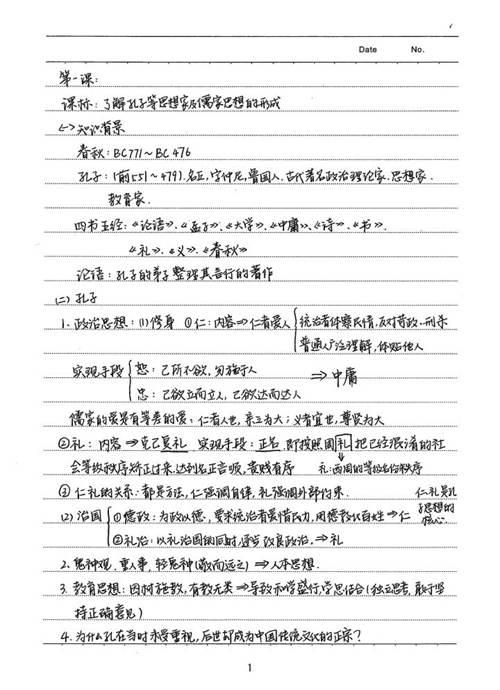 Date No.
第一课:
课标:了解孔子等思想家及儒家思想的形成
(一)知识背景
春秋:BC771~BC476
孔子:(前551~479).名丘,字仲尼,鲁国人.古代著名政治理论家.思想家.
教育家.
四书五经:《论语》、《孟子》、《大学》、《中庸》、《诗》、《书》.
《礼》、《义》、《春秋》
论语:孔子的弟子整理其言行的著作
(二)孔子
1.政治思想:(1)修身 ①仁:内容⇒仁者爱人 统治者体察民情,反对苛政.刑杀
普通人广泛理解,体贴他人
实现手段 恕:己所不欲,勿施于人 ⇒中庸
忠:己欲立而立人,己欲达而达人
儒家的爱是有等差的爱:仁者人也,亲亲为大;义者宜也,尊贤为大
②礼:内容⇒克己复礼 实现手段:正名.即按照周礼把已经混淆的社
会等级秩序矫正过来,达到名正言顺,贵贱有序 礼:西周的等级名份秩序
③仁礼的关系:都是方法,仁强调自律,礼强调外部约束. 仁礼是孔
子思想的
核心.
(2)治国 ①德政:为政以德,要求统治者爱惜民力,用德教化百姓⇒仁
②礼治:以礼治国的同时,逐步改良政治,⇒礼
2.鬼神观.重人事,轻鬼神(敬而远之)⇒人本思想.
3.教育思想:因材施教,有教无类⇒导致私学盛行,学思结合(独立思考,敢于坚
持正确意见)
4.为什么孔在当时未受重视,后世却成为中国传统文化的正宗?
1